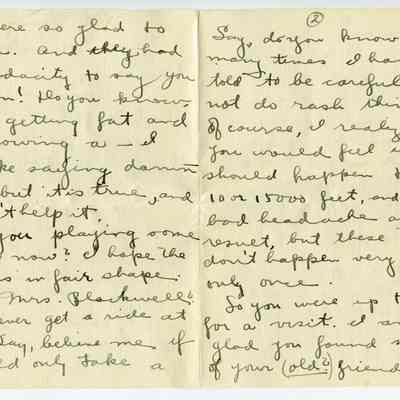 ere so glad to
. And they had
dacity to say you
n! Do you know
getting fat and
owing a — I
ke saying damn
but it is true, and
't help it.
you playing some
now? I hope the
s in fair shape.
Mrs. Blackwell
ever get a ride at
Say, believe me if
d only take a
(2)
Say, do you know
many times I ha
told to be careful
not do rash thi
Of course, I realiz
you would feel
should happen
10 or 15000 feet, and
bad headache a
result, but these
don't happen very
only once.
So you were up t
for a visit. I a
glad you found s
of your (old?) friend